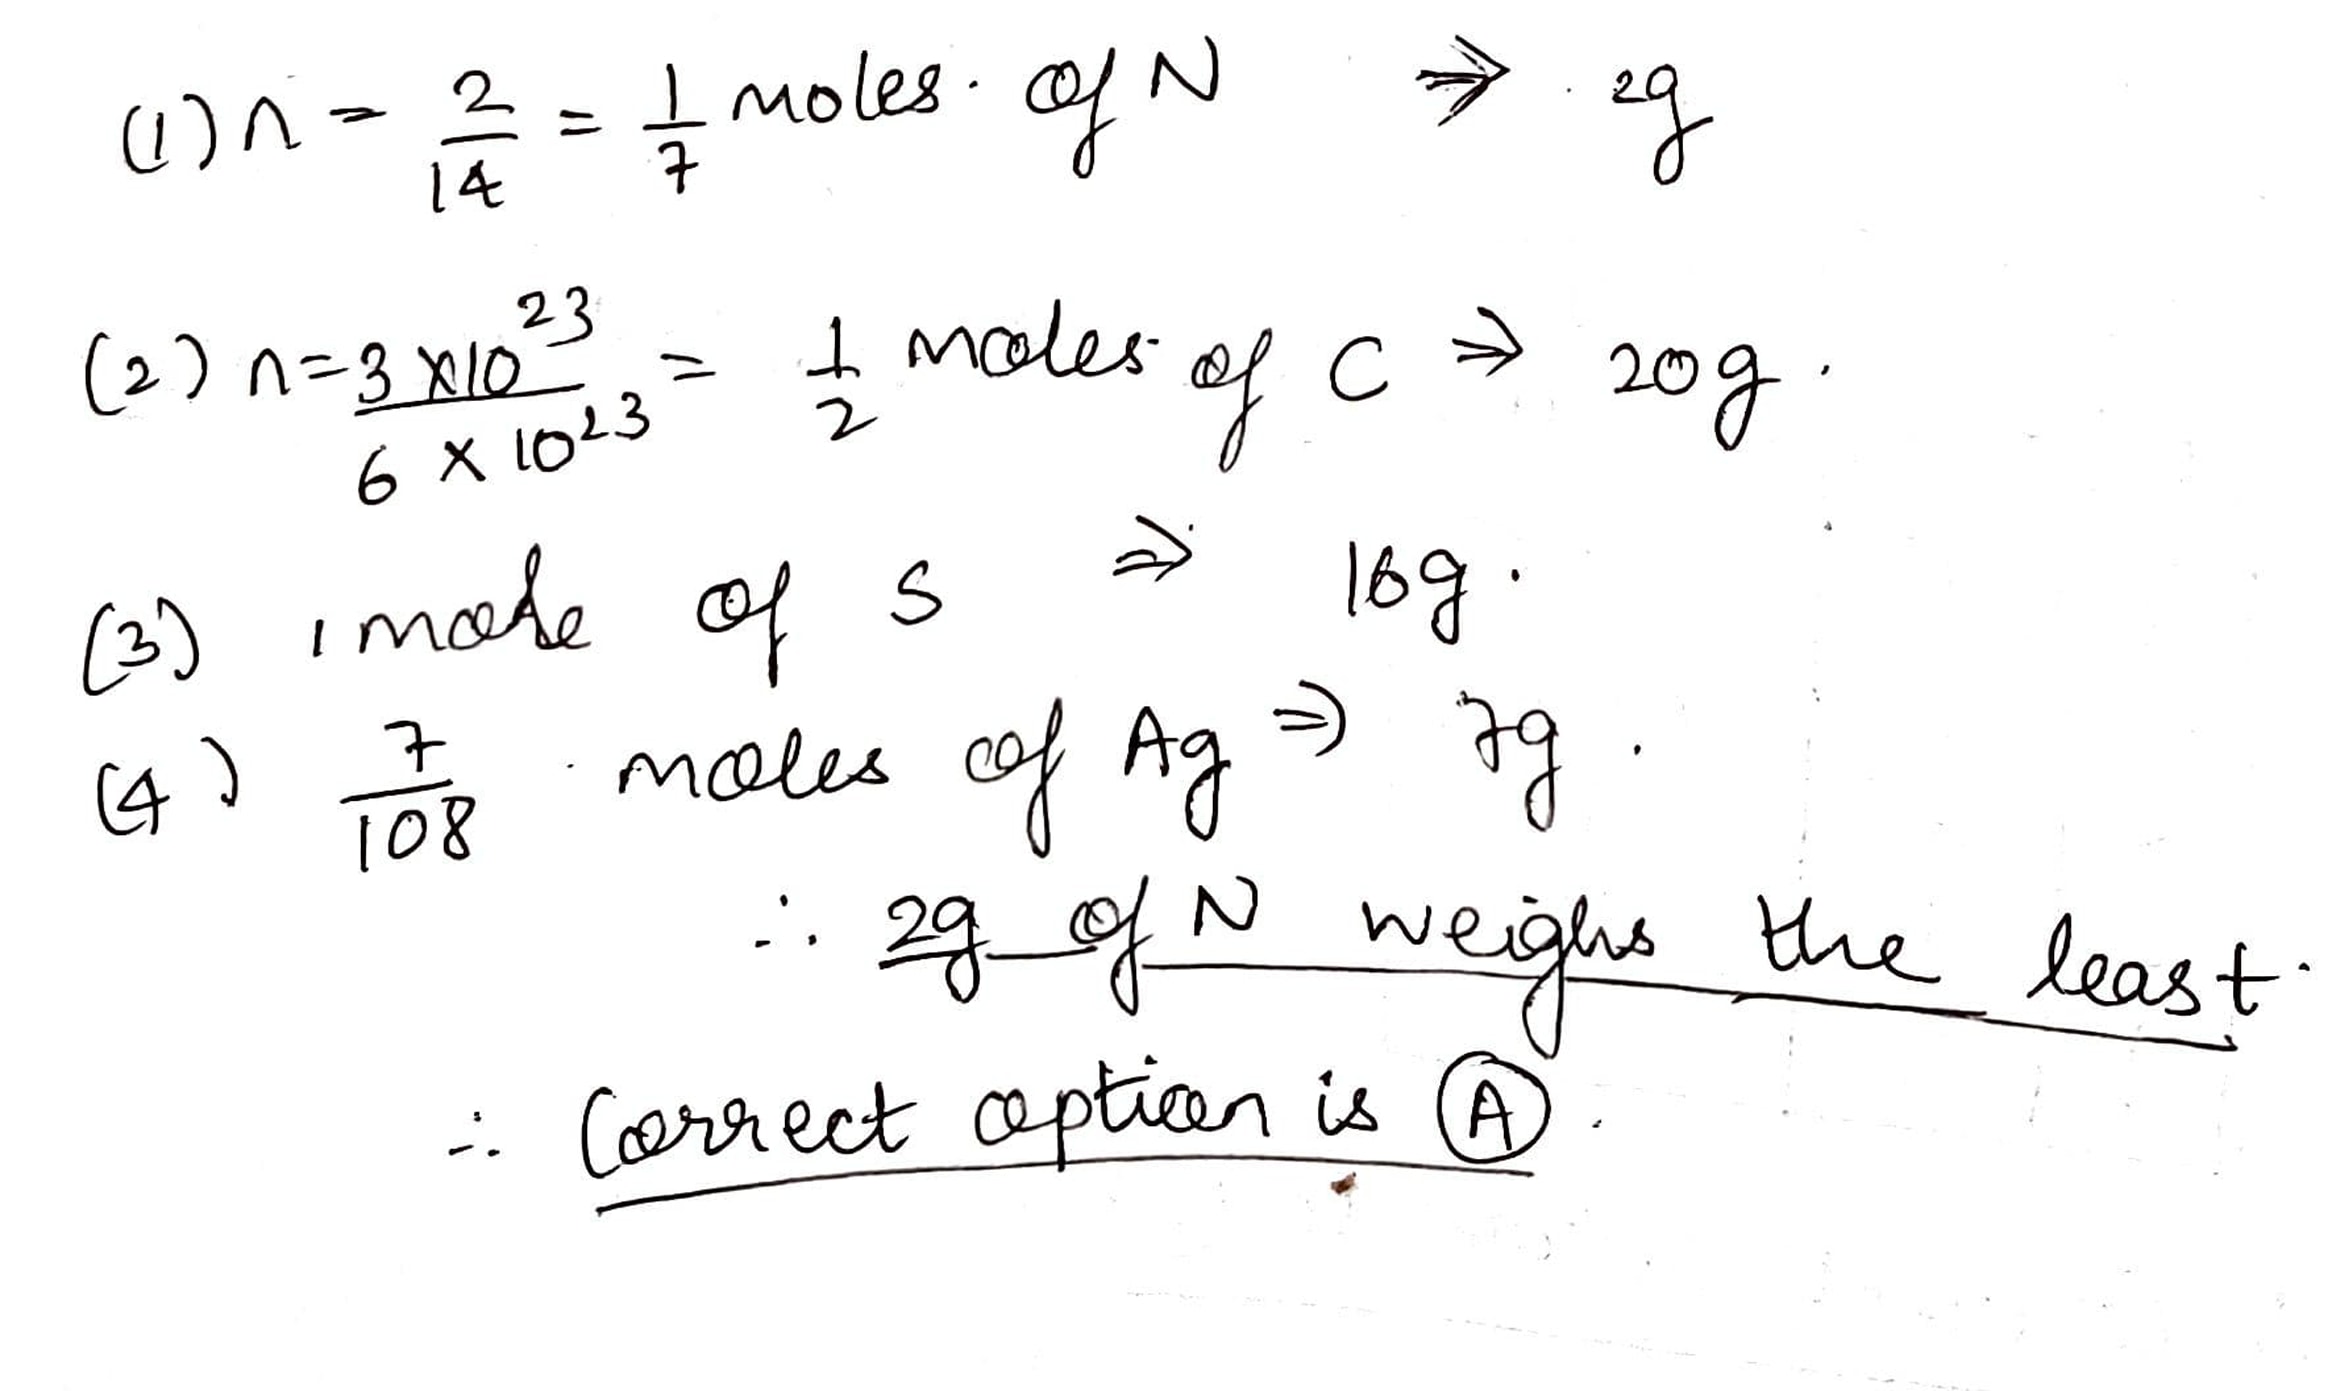 (1) n = 2/14 = 1/7 moles. of N ⇒ 2g
(2) n = 3×10^23 / 6×10^23 = 1/2 moles of C ⇒ 20g.
(3) 1 mole of S ⇒ 16g.
(4) 7/108 moles of Ag ⇒ 7g.
∴ 2g of N weighs the least.
∴ Correct option is (A).